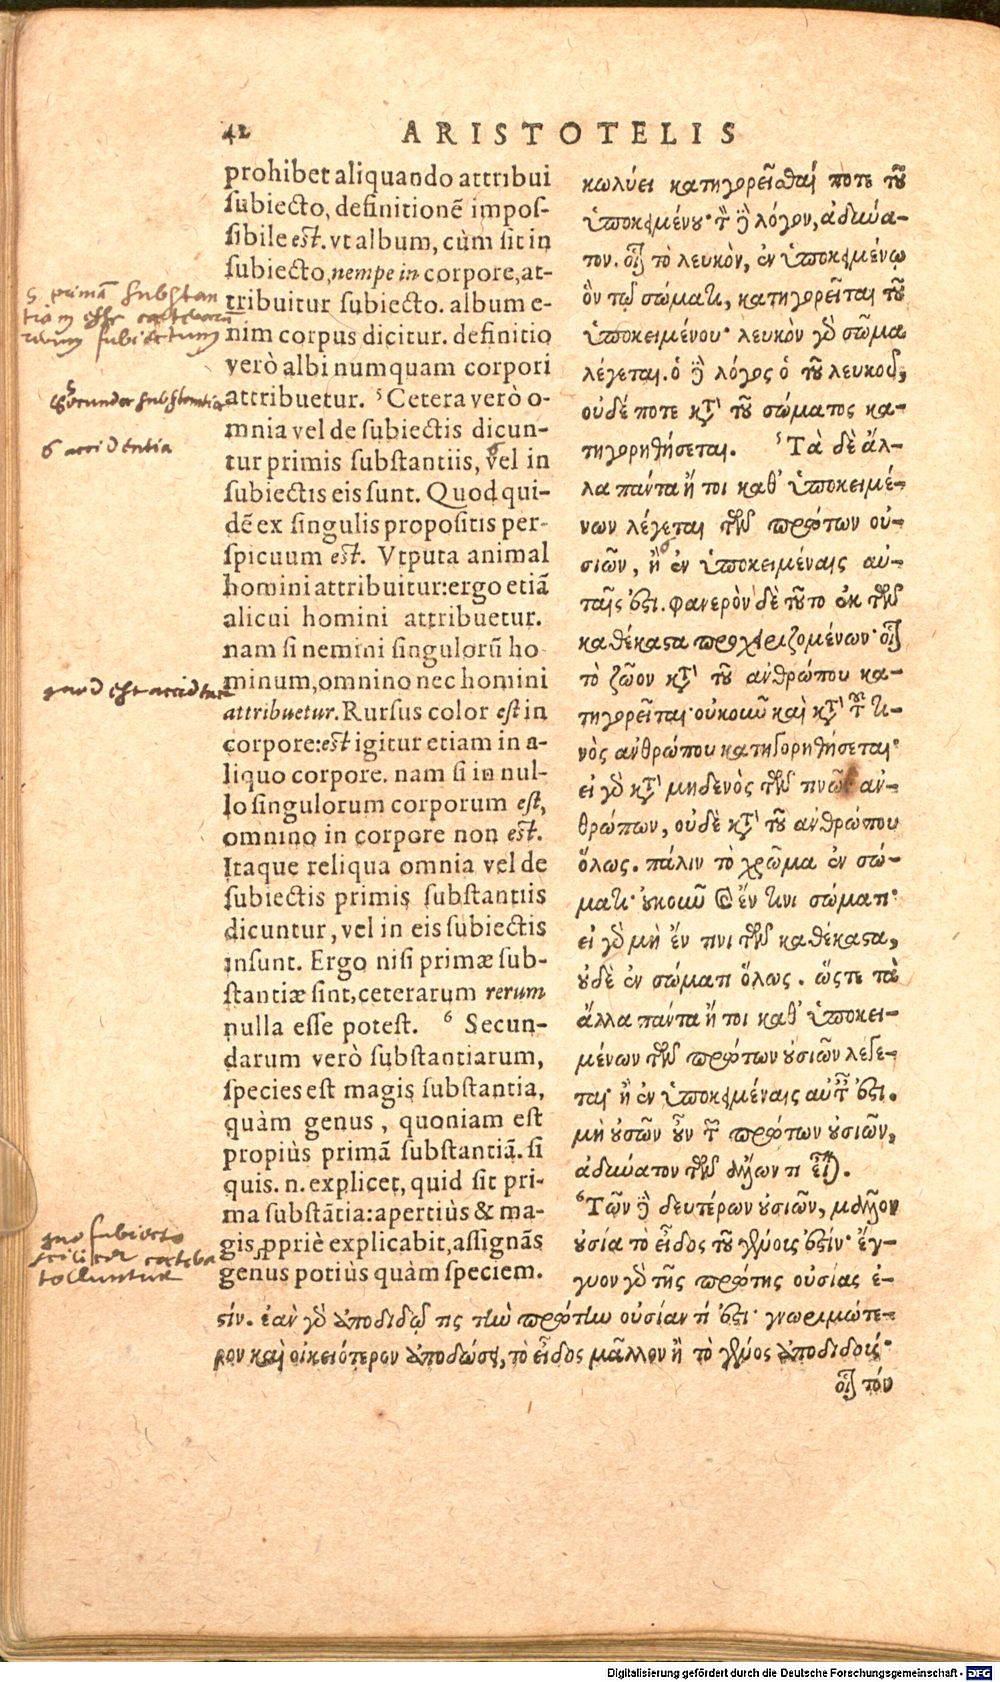 42 ARISTOTELIS
prohibet aliquando attribui
subiecto, definitionē impos-
sibile est. vt album, cùm sit in
subiecto, nempe in corpore, at-
tribuitur subiecto. album e-
nim corpus dicitur. definitio
verò albi numquam corpori
attribuetur. ⁵ Cetera verò o-
mnia vel de subiectis dicun-
tur primis substantiis, vel in
subiectis eis sunt. Quod qui-
dē ex singulis propositis per-
spicuum est. Vtputa animal
homini attribuitur: ergo etiā
alicui homini attribuetur.
nam si nemini singulorū ho-
minum, omnino nec homini
attribuetur. Rursus color est in
corpore: est igitur etiam in a-
liquo corpore. nam si in nul-
lo singulorum corporum est,
omnino in corpore non est.
Itaque reliqua omnia vel de
subiectis primis substantiis
dicuntur, vel in eis subiectis
insunt. Ergo nisi primæ sub-
stantiæ sint, ceterarum rerum
nulla esse potest. ⁶ Secun-
darum verò substantiarum,
species est magis substantia,
quàm genus, quoniam est
propiùs primā substantiā. si
quis. n. explicet, quid sit pri-
ma substātia: apertiùs & ma-
gis ꝓpriè explicabit, assignās
genus potiùs quàm speciem.
κωλύει κατηγορεῖσθαί ποτε τοῦ
ὑποκειμένου· τὸν δὲ λόγον, ἀδύνα-
τον. οἷον τὸ λευκὸν, ἐν ὑποκειμένῳ
ὂν τῷ σώματι, κατηγορεῖται τοῦ
ὑποκειμένου· λευκὸν γὰρ σῶμα
λέγεται. ὁ δὲ λόγος ὁ τοῦ λευκοῦ,
οὐδέ ποτε κατὰ τοῦ σώματος κα-
τηγορηθήσεται. ⁵ Τὰ δὲ ἄλ-
λα πάντα ἤ τοι καθ' ὑποκειμέ-
νων λέγεται τῶν πρώτων οὐ-
σιῶν, ἢ ἐν ὑποκειμέναις αὐ-
ταῖς ἐστι. φανερὸν δὲ τοῦτο ἐκ τῶν
καθέκαστα προχειριζομένων· οἷον
τὸ ζῶον κατὰ τοῦ ἀνθρώπου κα-
τηγορεῖται· οὐκοῦν καὶ κατὰ τοῦ τι-
νὸς ἀνθρώπου κατηγορηθήσεται·
εἰ γὰρ κατὰ μηδενὸς τῶν τινῶν ἀν-
θρώπων, οὐδὲ κατὰ τοῦ ἀνθρώπου
ὅλως. πάλιν τὸ χρῶμα ἐν σώ-
ματι· οὐκοῦν καὶ ἔν τινι σώματι·
εἰ γὰρ μὴ ἔν τινι τῶν καθέκαστα,
οὐδὲ ἐν σώματι ὅλως. ὥστε τὰ
ἄλλα πάντα ἤ τοι καθ' ὑποκει-
μένων τῶν πρώτων οὐσιῶν λέγε-
ται ἢ ἐν ὑποκειμέναις αὐταῖς ἐστι.
μὴ οὐσῶν οὖν τῶν πρώτων οὐσιῶν,
ἀδύνατον τῶν ἄλλων τι εἶναι.
⁶ Τῶν δὲ δευτέρων οὐσιῶν, μᾶλλον
οὐσία τὸ εἶδος τοῦ γένους ἐστίν· ἔγ-
γυον γὰρ τῆς πρώτης οὐσίας ἐ-
στίν. ἐὰν γὰρ ἀποδιδῷ τις τὴν πρώτην οὐσίαν τί ἐστι· γνωριμώτε-
ρον καὶ οἰκειότερον ἀποδώσει, τὸ εἶδος μᾶλλον ἢ τὸ γένος ἀποδιδούς·
οἷον τόν
5 primā substan
tiam esse
subiectum
secundae substantiae
6 accidentia
quod est accidens
quo subiecto
scilicet
tolluntur
Digitalisierung gefördert durch die Deutsche Forschungsgemeinschaft - DFG